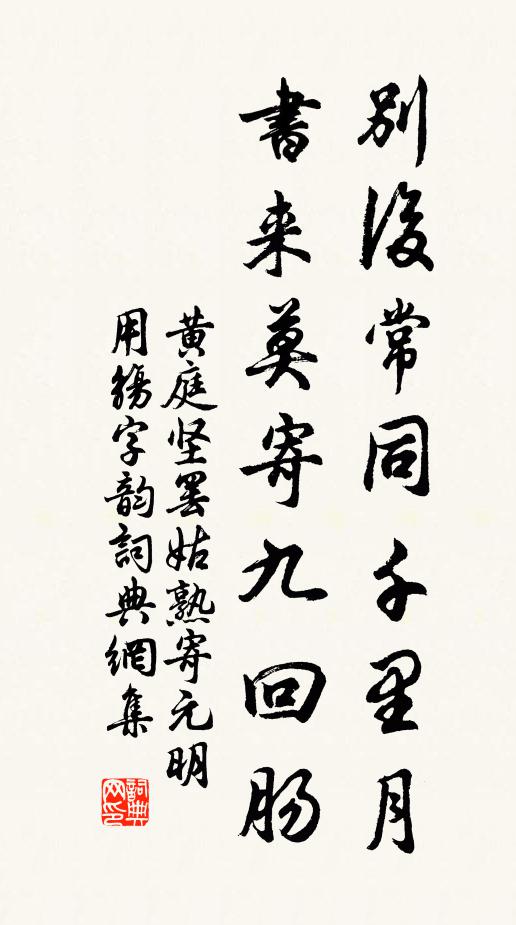 別後常同千里月
書来莫寄九回肠
黄庭坚罢姑熟寄元明
用觞字韵詞典網集
詞典网印